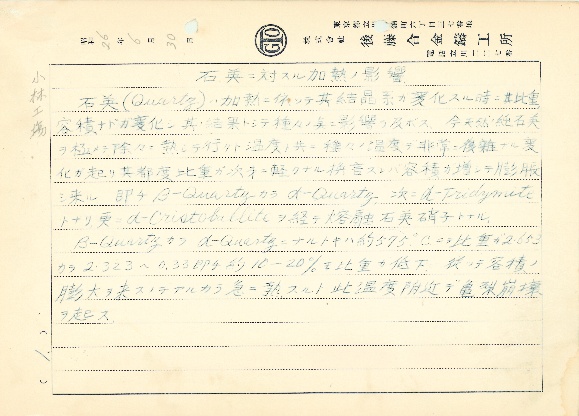 昭和26年6月30日
株式会社 後藤合金鑄工所
小林工場
石英ニ対スル加熱ノ影響
石英(Quartz)ハ加熱ニ依ッテ其結晶系ガ変化スル時ニ其比重
容積ナドガ変化シ其結果トシテ種々ノ影響ヲ及ボス 今天然純石英
ヲ極メテ除々ニ熱シテ行クト温度ト共ニ種々ノ温度デ非常ニ複雑ナル変
化ガ起リ其都度比重ガ次第ニ軽クナル 容積ヲ増シテ膨脹
ヲ来ル 即チ β-Quartz カラ α-Quartz 次ニ α-Tridymite
トナリ更ニ α-Cristobalite ヲ経テ熔融石英硝子トナル
β-Quartz カラ α-Quartz ニナルトキハ約575°C ニテ比重ガ2.653
カラ 2.323 ヘ 0.33 即チ約 ~20% モ比重ガ低下 従ッテ容積ノ
膨大ヲ来スノデアルカラ急ニ熱スルト此温度附近デ亀裂崩壊
ヲ起ス